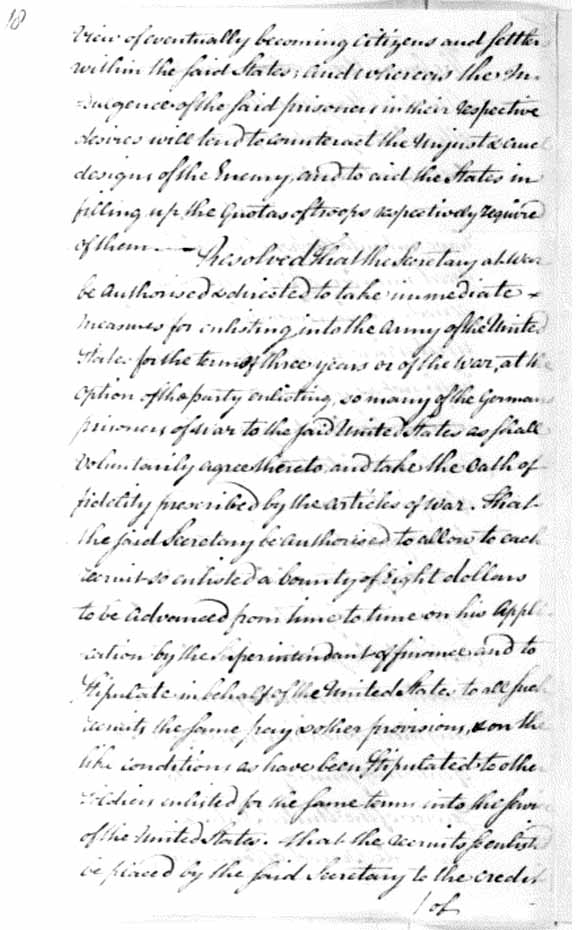 18
View of eventually becoming Citizens and settlers
within the said States; and whereas the In-
-dulgence of the said prisoners in their respective
desires will tend to counteract the Unjust & cruel
designs of the Enemy, and to aid the States in
filling up the Quotas of troops respectively required
of them. — Resolved That the Secretary at War
be Authorised & directed to take immediate
Measures for enlisting into the Army of the United
States for the term of three years or of the war, at the
Option of the party enlisting, so many of the German
prisoners of war to the said United States as shall
Voluntarily agree thereto, and take the Oath of
fidelity prescribed by the Articles of War. That
the said Secretary be Authorised to allow to each
recruit so enlisted a bounty of Eight dollars
to be Advanced from time to time on his Appli-
-cation by the Superintendant of finance and to
Stipulate in behalf of the United States to all such
recruits the same pay & other provisions, & on the
like conditions as have been Stipulated to other
soldiers enlisted for the same term into the Service
of the United States. That the recruits so enlisted
be placed by the said Secretary to the credit
/ of